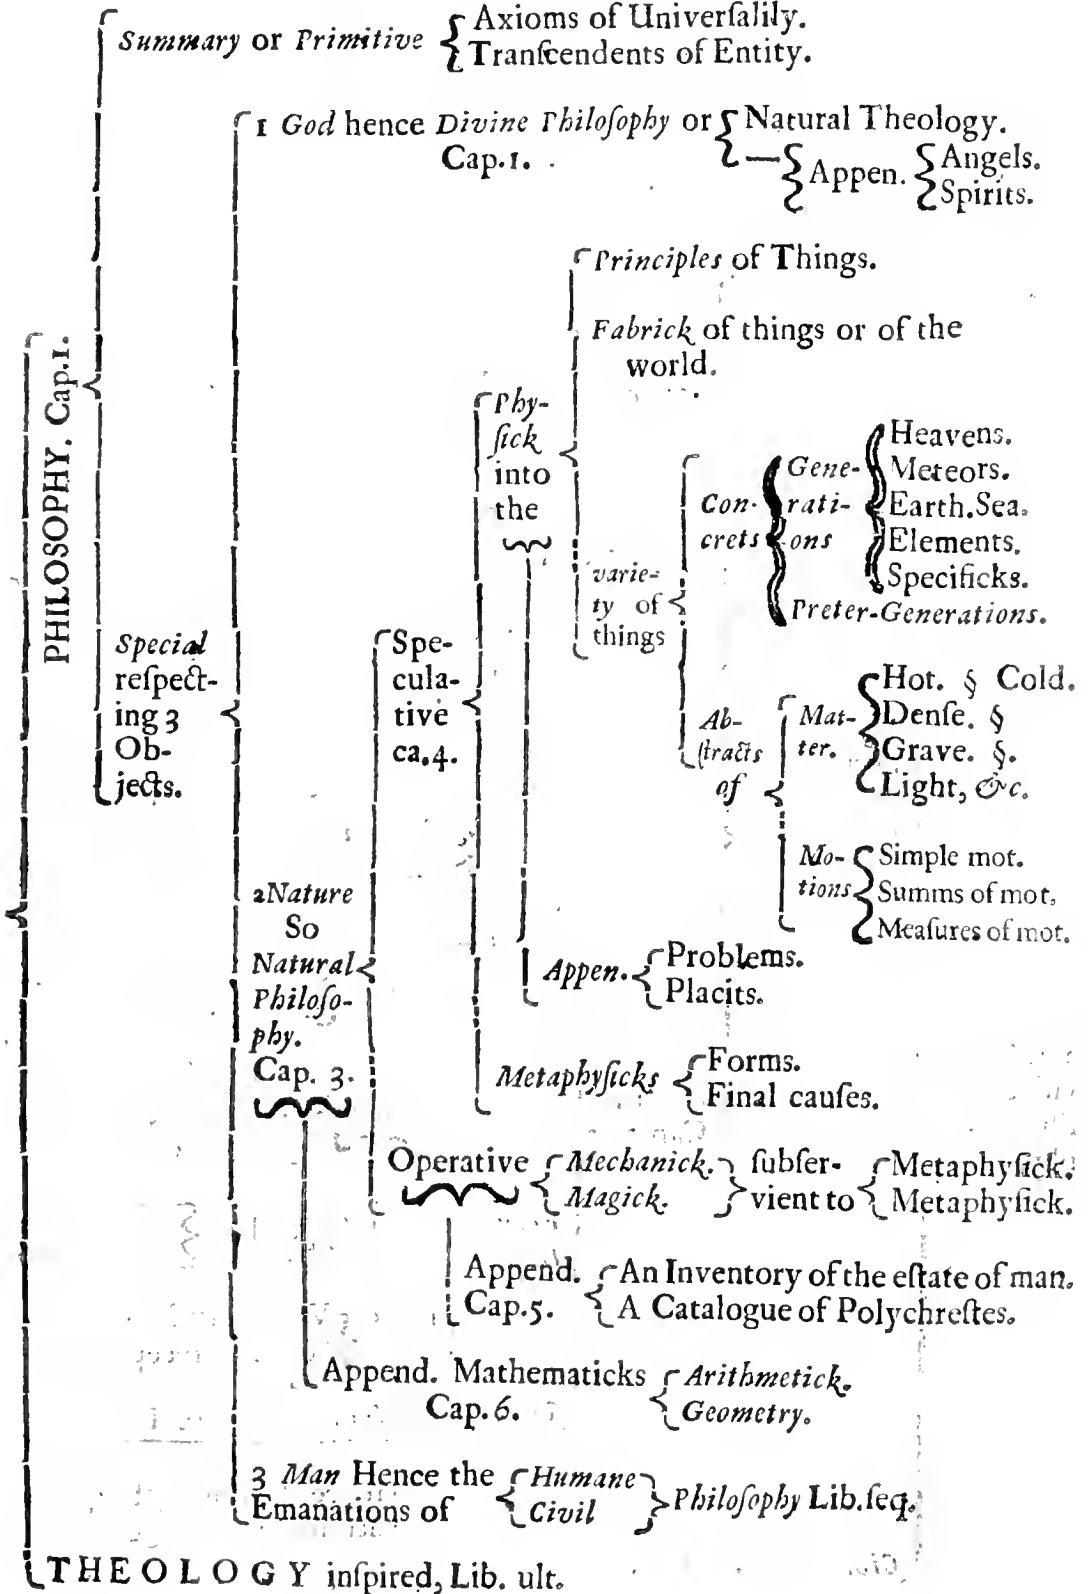 Summary or Primitive
Axioms of Univerſalily.
Tranſcendents of Entity.
1 God hence Divine Philoſophy or
Cap.1.
Natural Theology.
Appen.
Angels.
Spirits.
PHILOSOPHY. Cap.1.
Special
reſpect-
ing 3
Ob-
jects.
2 Nature
So
Natural
Philoſo-
phy.
Cap. 3.
Spe-
cula-
tive
ca.4.
Phy-
ſick
into
the
Principles of Things.
Fabrick of things or of the
world.
varie-
ty of
things
Con-
crets
Gene-
rati-
ons
Heavens.
Meteors.
Earth.Sea.
Elements.
Specificks.
Preter-Generations.
Ab-
ſtracts
of
Mat-
ter.
Hot. § Cold.
Denſe. §
Grave. §.
Light, &c.
Mo-
tions
Simple mot.
Summs of mot.
Meaſures of mot.
Appen.
Problems.
Placits.
Metaphyſicks
Forms.
Final cauſes.
Operative
Mechanick.
Magick.
ſubſer-
vient to
Metaphyſick.
Metaphyſick.
Append.
Cap.5.
An Inventory of the eſtate of man.
A Catalogue of Polychreſtes.
Append. Mathematicks
Cap. 6.
Arithmetick.
Geometry.
3 Man Hence the
Emanations of
Humane
Civil
Philoſophy Lib.ſeq.
THEOLOGY inſpired, Lib. ult.